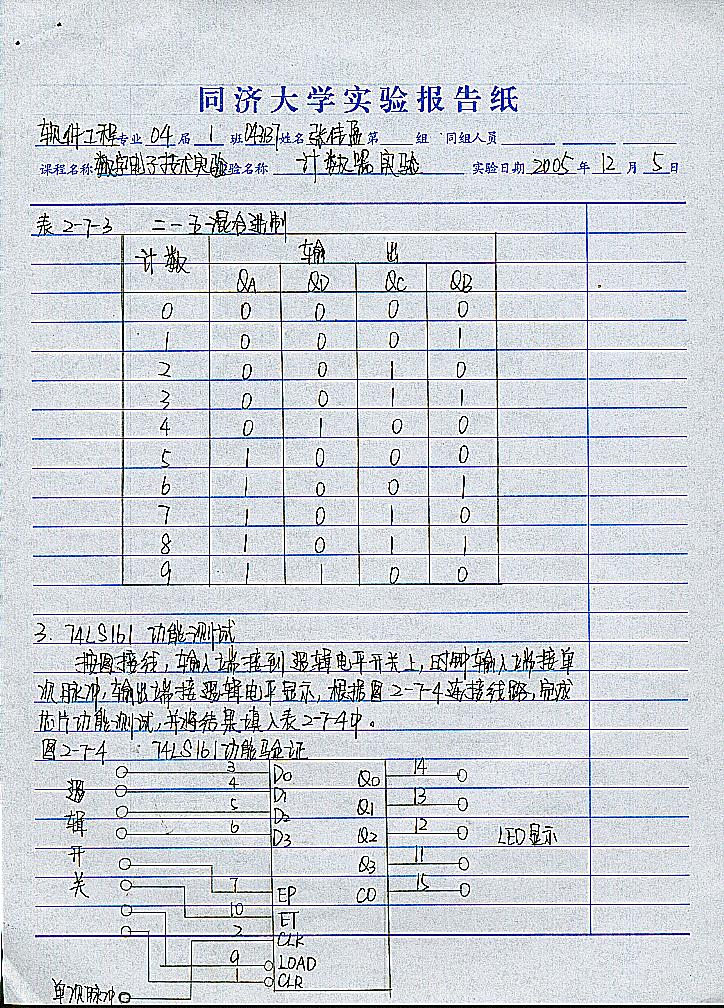 同济大学实验报告纸
软件工程专业 04 届 1 班 043137 姓名 张佳孟 第 组 同组人员
课程名称 数字电子技术实验 验名称 计数器实验 实验日期 2005 年 12 月 5 日
表 2-7-3 二-五混合进制
计数 输 出
QA QD QC QB
0 0 0 0 0
1 0 0 0 1
2 0 0 1 0
3 0 0 1 1
4 0 1 0 0
5 1 0 0 0
6 1 0 0 1
7 1 0 1 0
8 1 0 1 1
9 1 1 0 0
3. 74LS161 功能测试
按图接线,输入端接到逻辑电平开关上,时钟输入端接单
次脉冲,输出端接逻辑电平显示,根据图2-7-4连接线路,完成
芯片功能测试,并将结果填入表2-7-4中。
图2-7-4 :74LS161功能验证
逻辑开关
3 D0 Q0 14
4 D1 Q1 13
5 D2 Q2 12 LED显示
6 D3 Q3 11
7 EP CO 15
10 ET
2 CLK
9 LOAD
1 CLR
单次脉冲